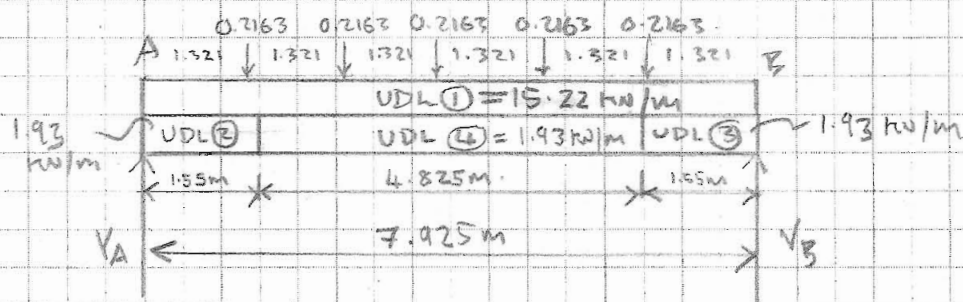 0.2163 0.2163 0.2163 0.2163 0.2163
A 1.321 1.321 1.321 1.321 1.321 1.321 B
UDL ① = 15.22 kN/m
1.93 kN/m UDL ② UDL ④ = 1.93 kN/m UDL ③ 1.93 kN/m
1.55m 4.825m 1.55m
VA 7.925m VB